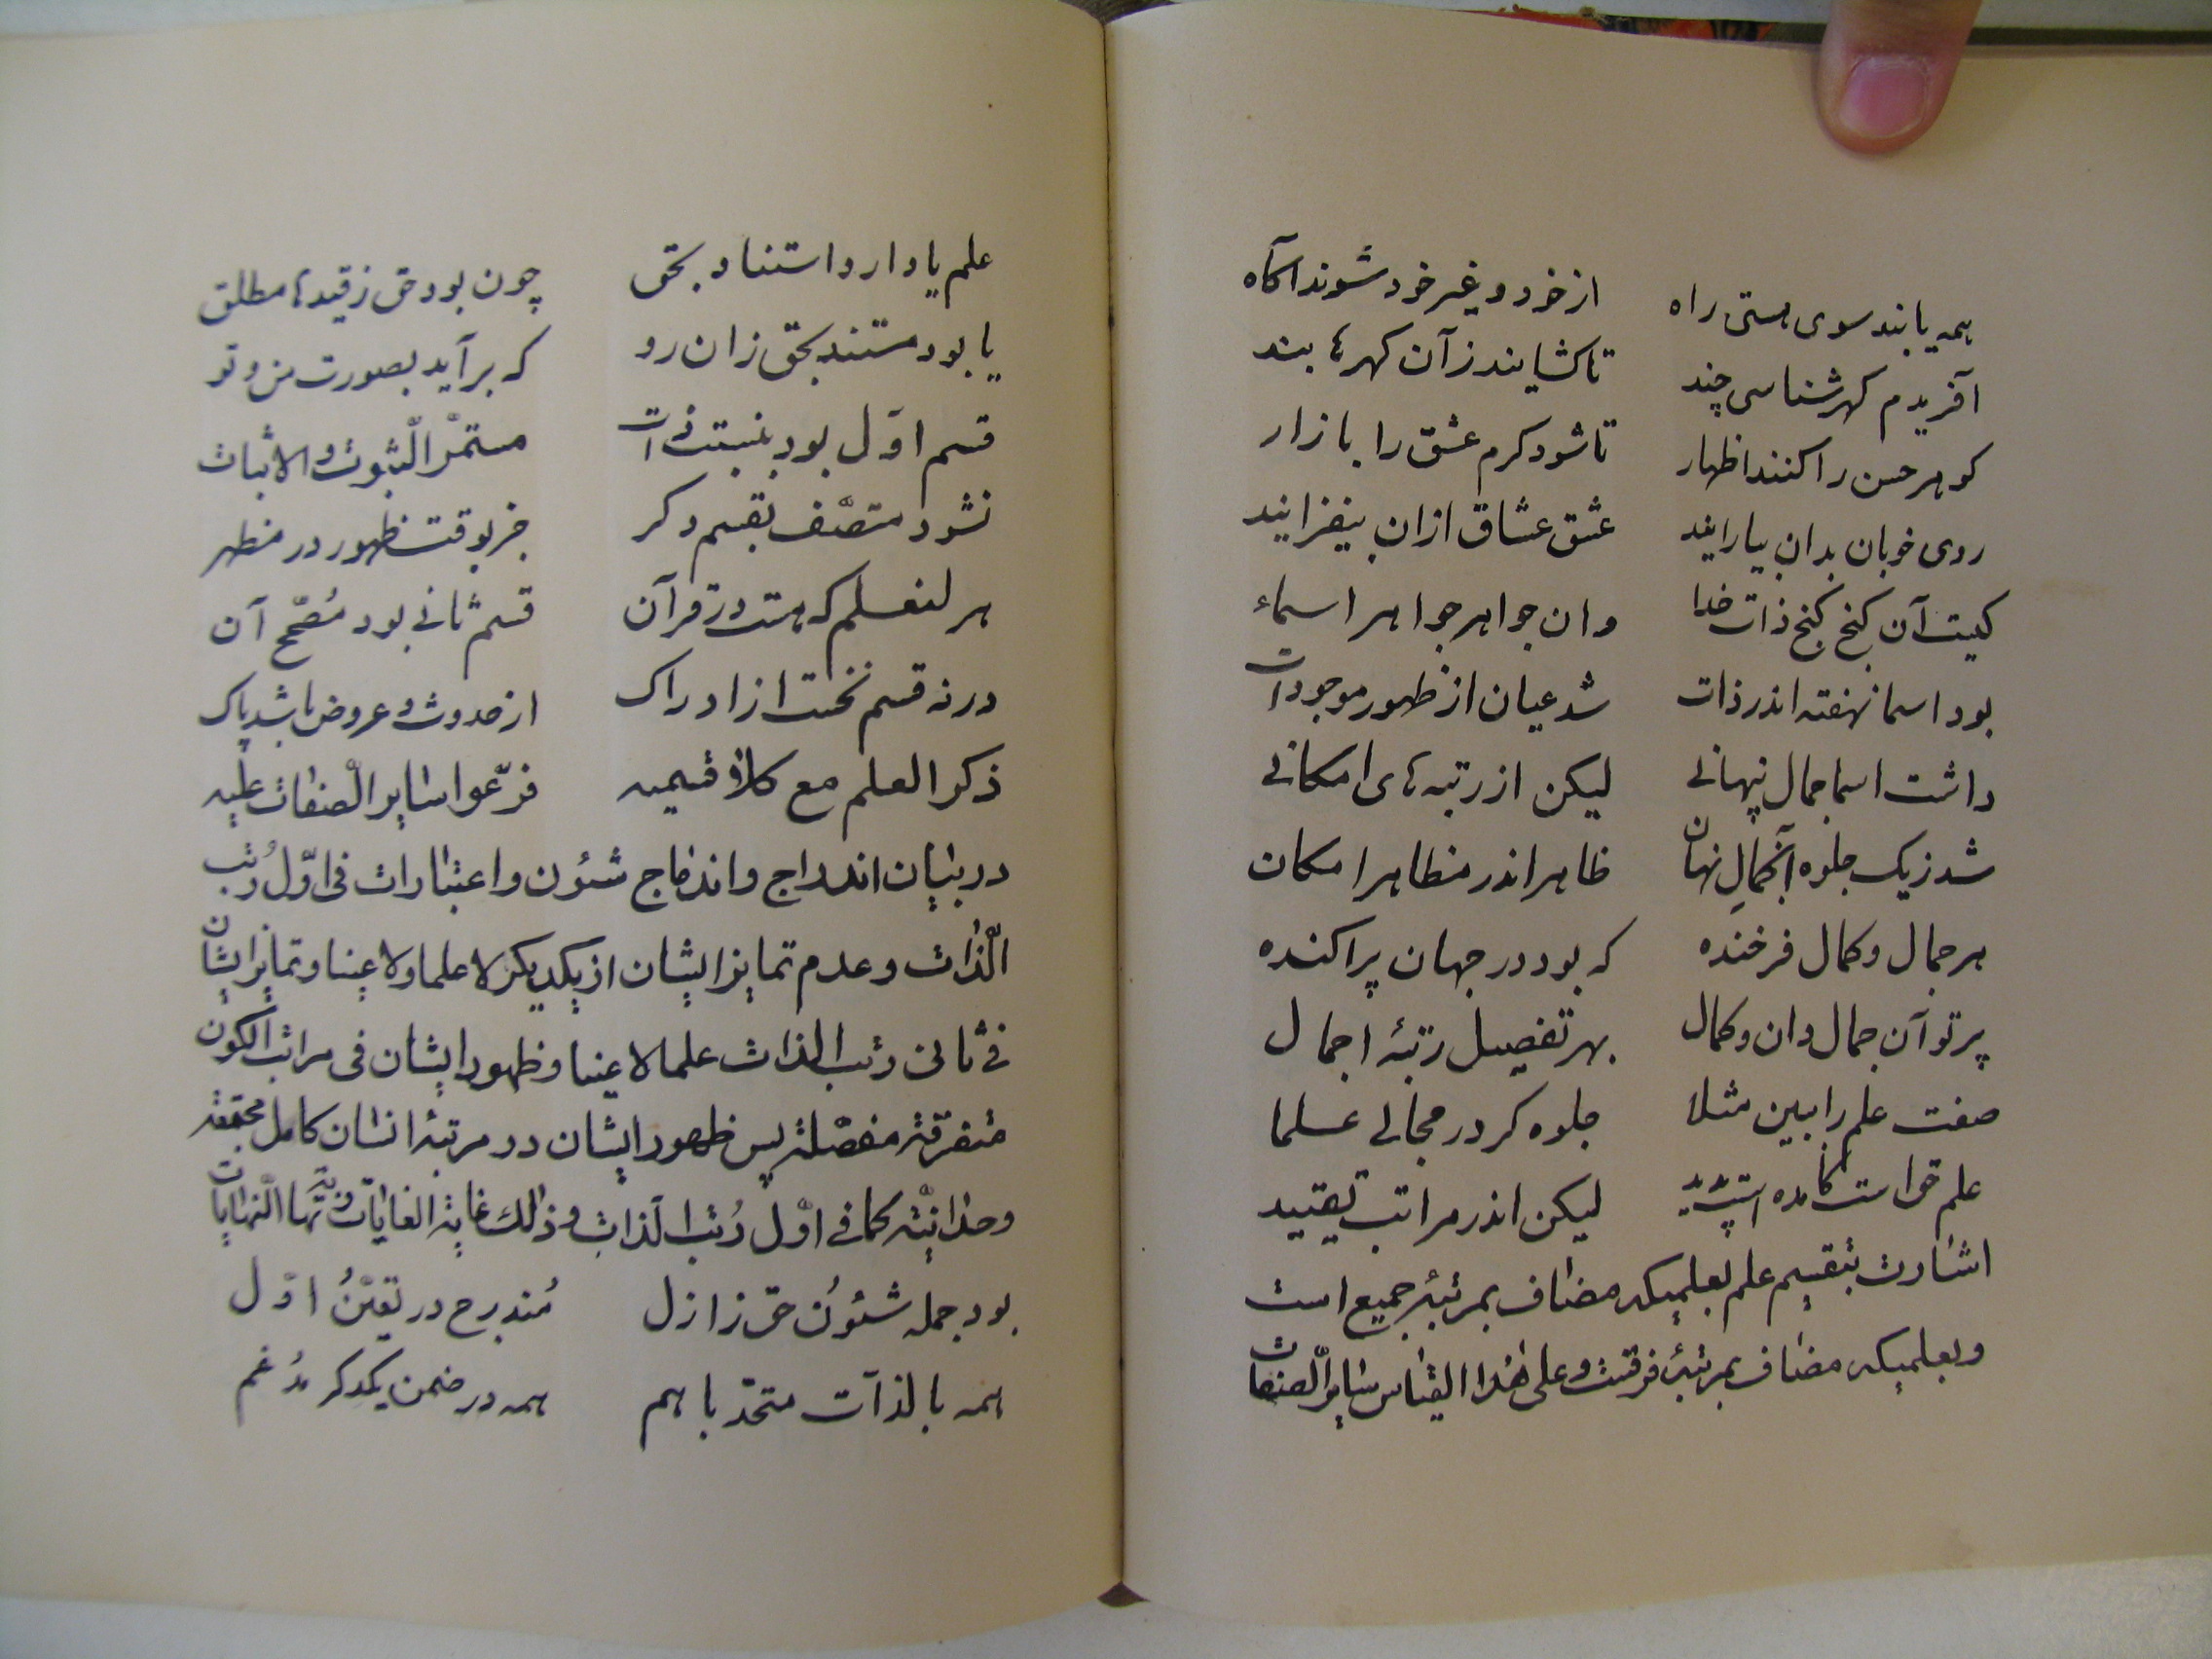 همه یابند سوی هستی راه از خود و غیر خود شوند آکاه
آفریدم کهر شناسی چند تا کشایند زآن کهرها بند
کوهر حسن را کنند اظهار تا شود کرم عشق را بازار
روی خوبان بدان بیارایند عشق عشاق ازان بیفزایند
کیست آن کنج کنج ذات خدا وان جواهر جواهر اسماء
بود اسما نهفته اندر ذات شد عیان از ظهور موجودات
داشت اسما جمال پنهانی لیکن از رتبه‌های امکانی
شد زیک جلوه آنجمال نهان ظاهر اندر مظاهر امکان
هر جمال و کمال فرخنده که بود در جهان پراکنده
پرتو آن جمال دان و کمال بهر تفصیل رتبهٔ اجمال
صفت علم را ببین مثلا جلوه کر در مجالی علما
علم حق است کامده است پدید لیکن اندر مراتب تقیید
اشارت بتقسیم علم بعلمیکه مضاف بمرتبهٔ جمیع است
وبعلمیکه مضاف بمرتبهٔ فرقست وعلی هذا القیاس سایر الصفات
علم یا دارد استناد بحق چون بود حق زقیدها مطلق
یا بود مستند بحق زان رو که برآید بصورت من و تو
قسم اوّل بود بنسبت ذات مستمرّ الثبوت والاثبات
نشود متصّف بقسم دکر جز بوقت ظهور در مظهر
هر لنعلم که هست در قرآن قسم ثانی بود مُصحّح آن
ورنه قسم نخست از ادراک از حدوث و عروض باشد پاک
ذکر العلم مع کلا قسمیه فرّعوا سایر الصفات علیه
در بیان اندراج واندماج شئون واعتبارات فی اوّل رُتب
الذّات وعدم تمایز ایشان از یکدیکر لا علما ولا عینا وتمایز ایشان
فی ثانی رتب الذات علما لا عینا وظهور ایشان فی مراتب الکون
متفرّقة مفصّلة پس ظهور ایشان در مرتبهٔ انسان کامل مجتمعة
وحدانیّة کما فی اوّل رُتب الذات وذلک غایة الغایات ونهایة النهایات
بود جمله شئون حق زازل مُندرج در تعیّن اوّل
همه بالذّات متحّد با هم همه در ضمن یکدکر مُدغم